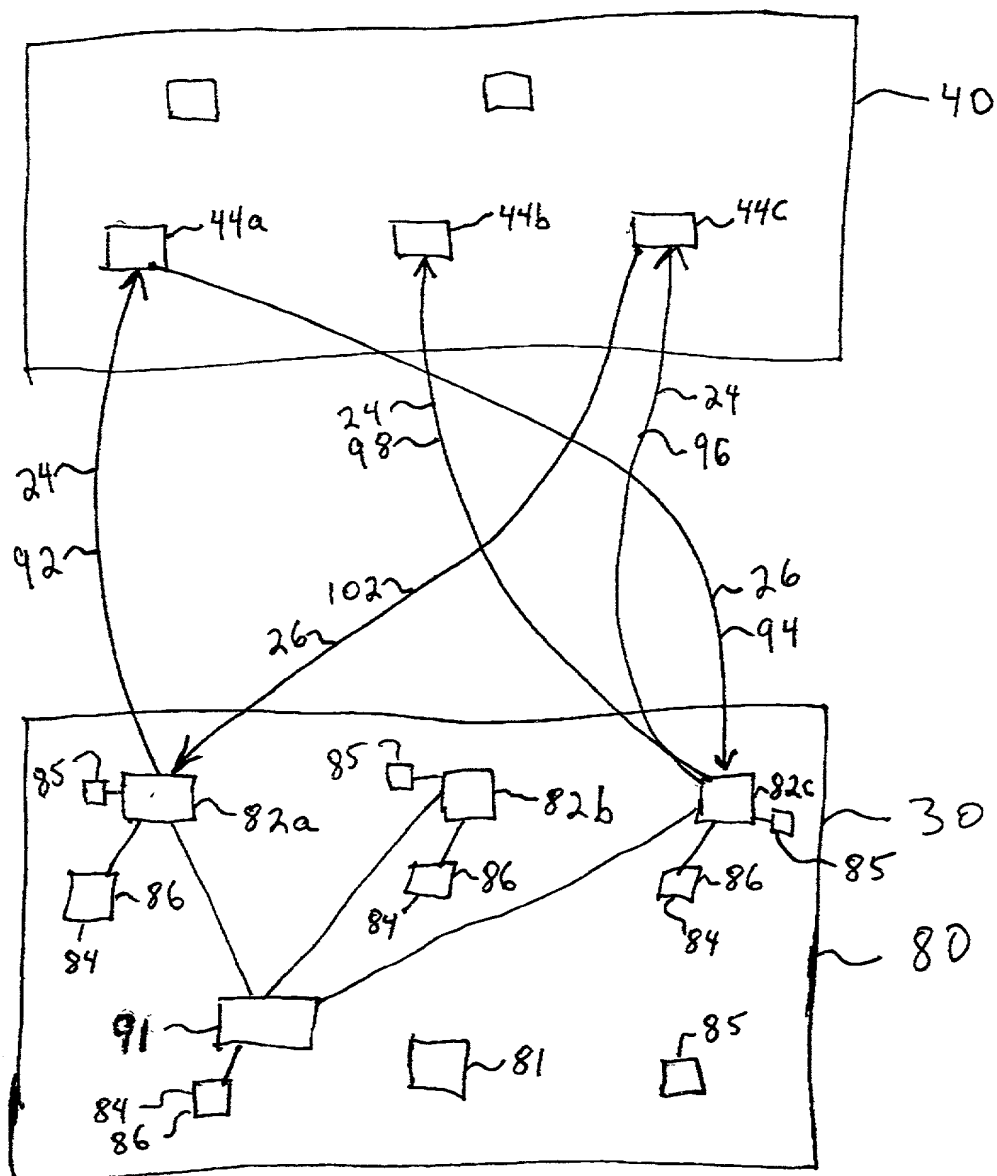 40
44a
44b
44c
24
98
24
96
24
92
102
26
26
94
85
82a
85
82b
82c
30
85
86
84
86
84
86
84
80
91
84
86
81
85